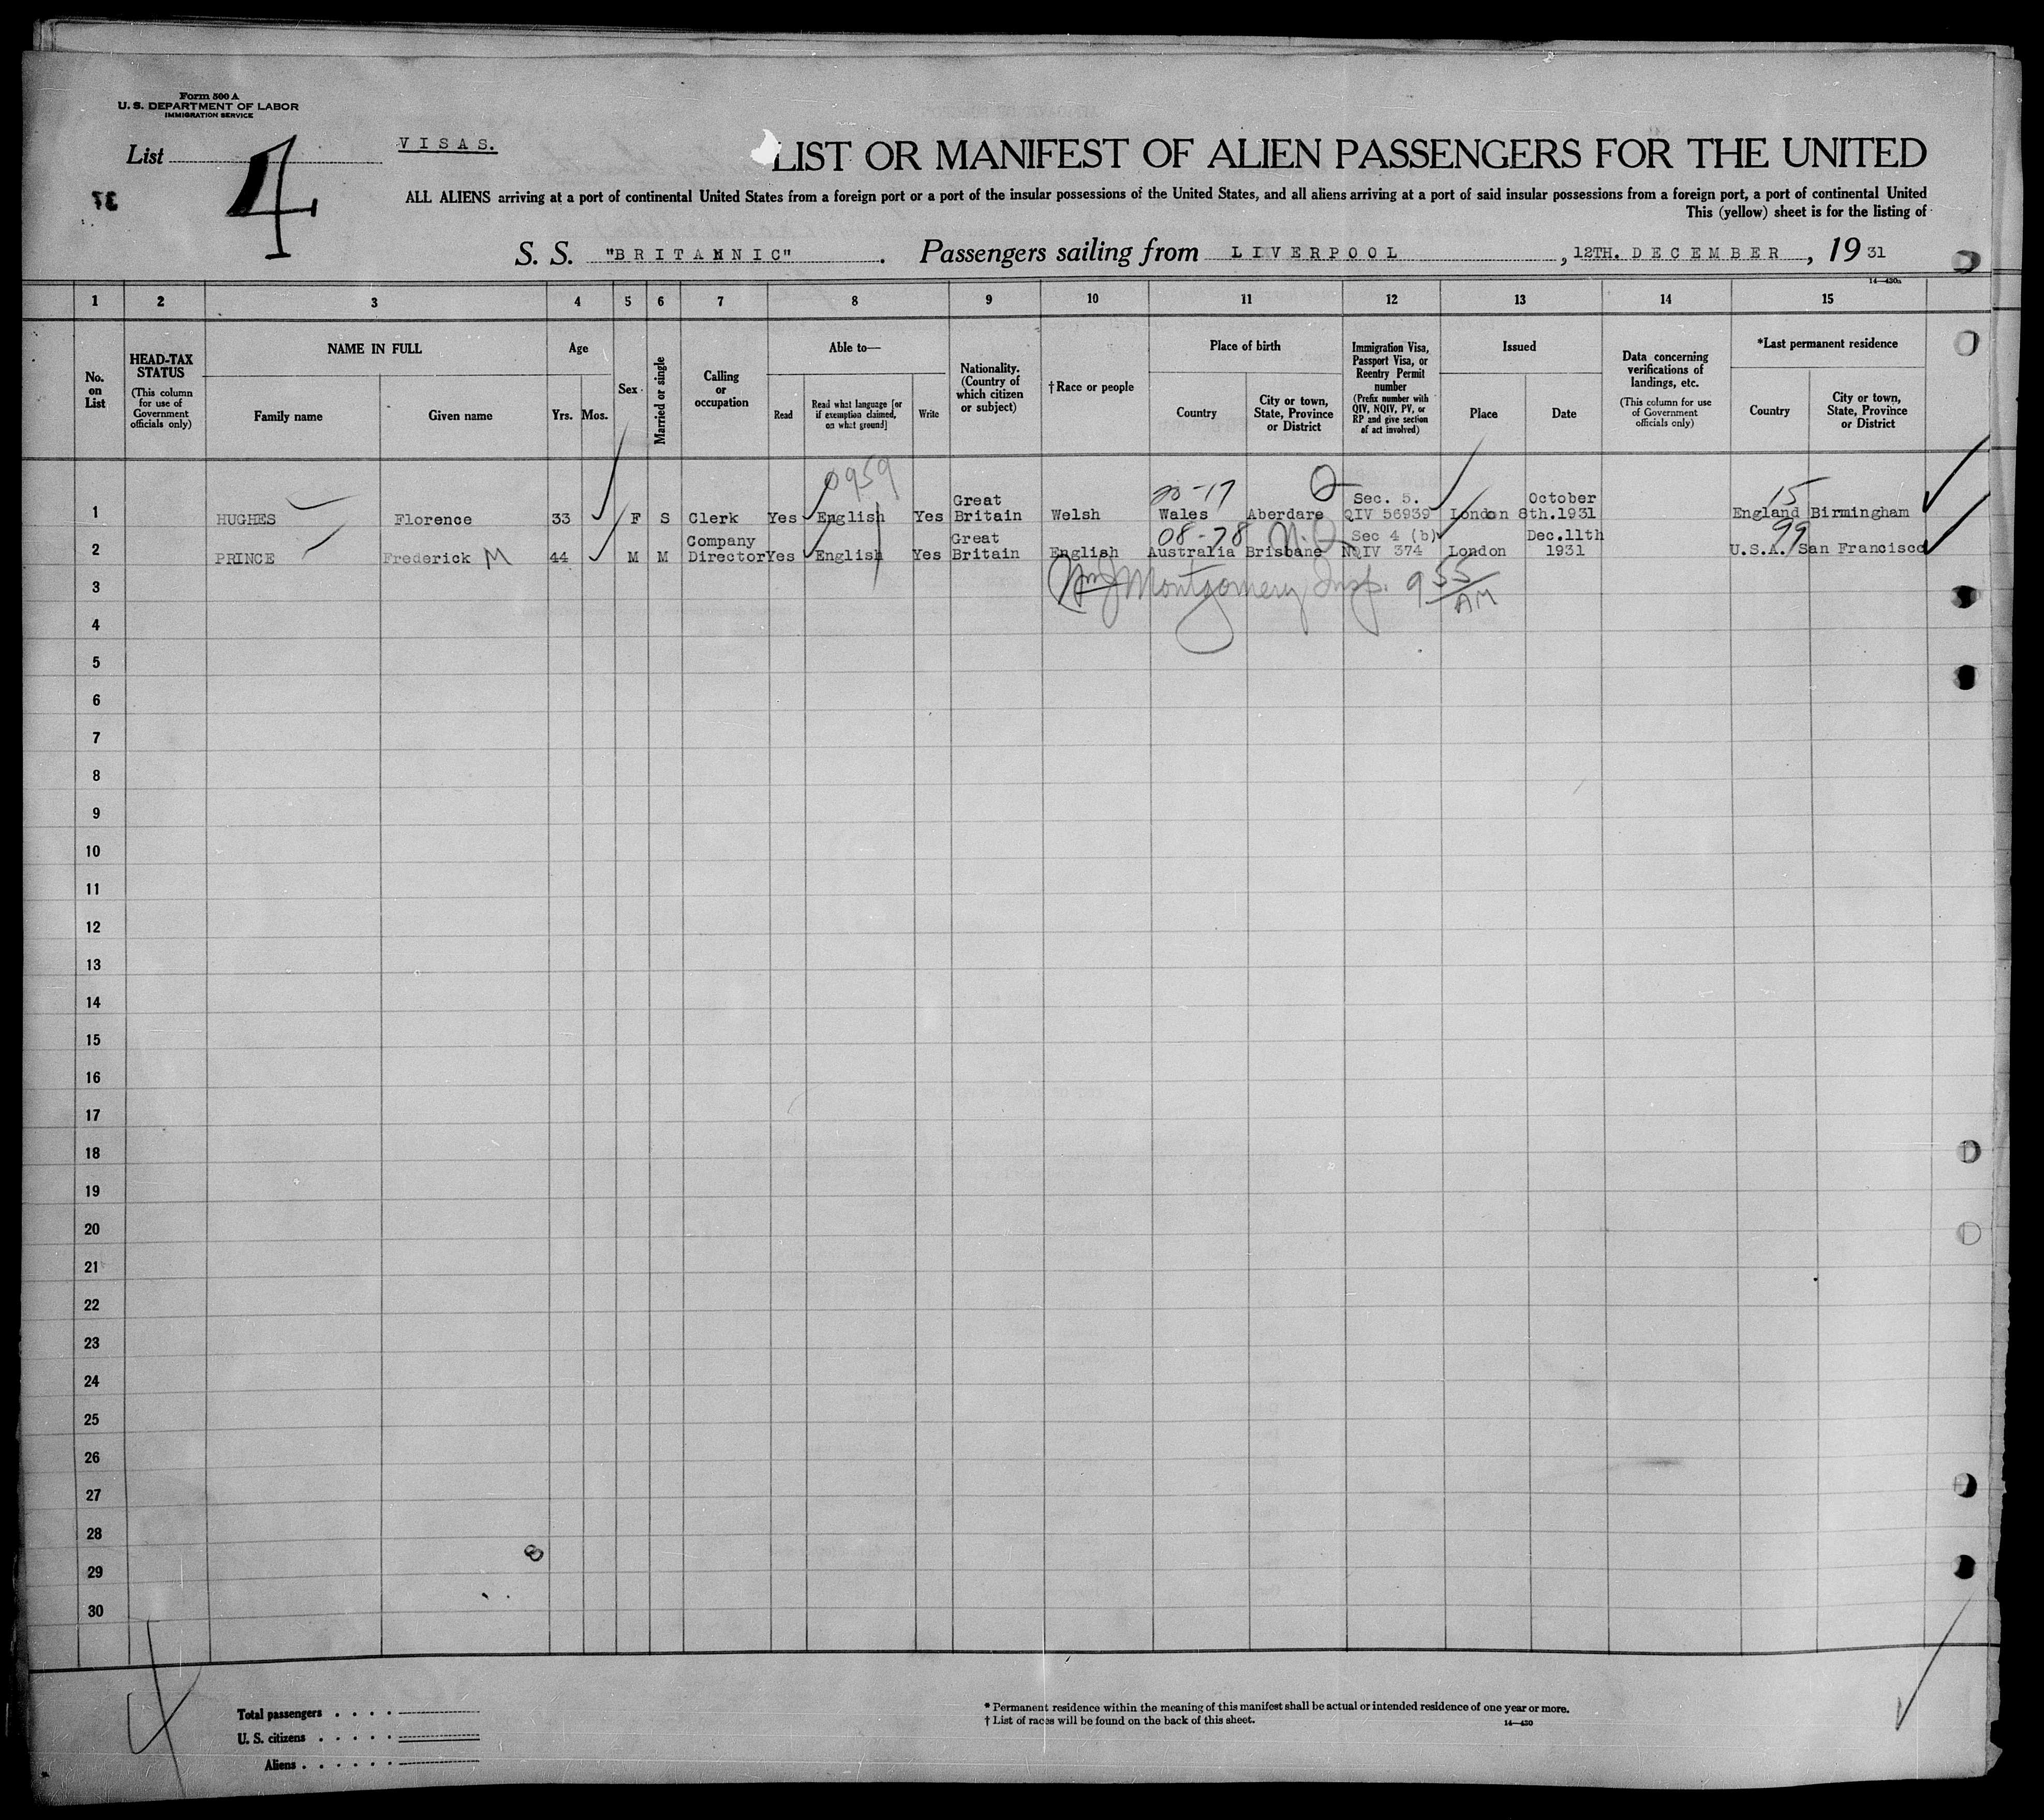 Form 500 A
U. S. DEPARTMENT OF LABOR
IMMIGRATION SERVICE
List 4
VISAS.
LIST OR MANIFEST OF ALIEN PASSENGERS FOR THE UNITED
ALL ALIENS arriving at a port of continental United States from a foreign port or a port of the insular possessions of the United States, and all aliens arriving at a port of said insular possessions from a foreign port, a port of continental United
This (yellow) sheet is for the listing of
S. S. "BRITANNIC". Passengers sailing from LIVERPOOL, 12TH. DECEMBER, 1931
14—430a
1 2 3 4 5 6 7 8 9 10 11 12 13 14 15
No. on List
HEAD-TAX STATUS
(This column for use of Government officials only)
NAME IN FULL
Family name
Given name
Age
Yrs. Mos.
Sex
Married or single
Calling or occupation
Able to—
Read
Read what language [or if exemption claimed, on what ground]
Write
Nationality. (Country of which citizen or subject)
†Race or people
Place of birth
Country
City or town, State, Province or District
Immigration Visa, Passport Visa, or Reentry Permit number
(Prefix number with QIV, NQIV, PV, or RP and give section of act involved)
Issued
Place
Date
Data concerning verifications of landings, etc.
(This column for use of Government officials only)
*Last permanent residence
Country
City or town, State, Province or District
0959
20-17 Q 15
1 HUGHES Florence 33 F S Clerk Yes English Yes Great Britain Welsh Wales Aberdare Sec. 5. QIV 56939 London October 8th.1931 England Birmingham
08-78 N.Q 99
2 PRINCE Frederick M 44 M M Company Director Yes English Yes Great Britain English Australia Brisbane Sec 4 (b) NQIV 374 London Dec.11th 1931 U.S.A. San Francisco
3 Montgomery Insp. 9 55/AM
4
5
6
7
8
9
10
11
12
13
14
15
16
17
18
19
20
21
22
23
24
25
26
27
28
29
30
Total passengers
U. S. citizens
Aliens
* Permanent residence within the meaning of this manifest shall be actual or intended residence of one year or more.
† List of races will be found on the back of this sheet.
14—430